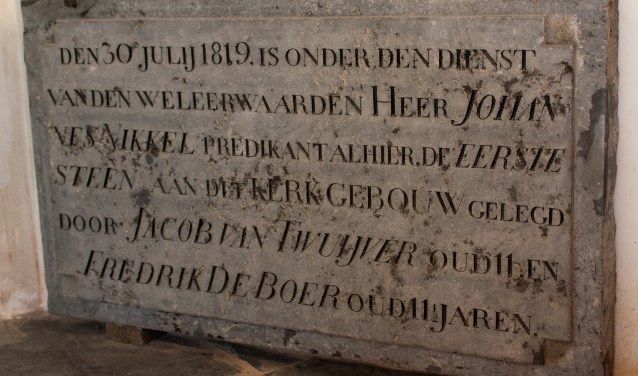 DEN 30e JULIJ 1819. IS ONDER DEN DIENST
VAN DEN WELEERWAARDEN HEER JOHAN
NES NIKKEL PREDIKANT ALHIER. DE EERSTE
STEEN AAN DIT KERK GEBOUW GELEGD
DOOR JACOB VAN TWUIJVER OUD 11. EN
FREDRIK DE BOER OUD 11 JAREN.